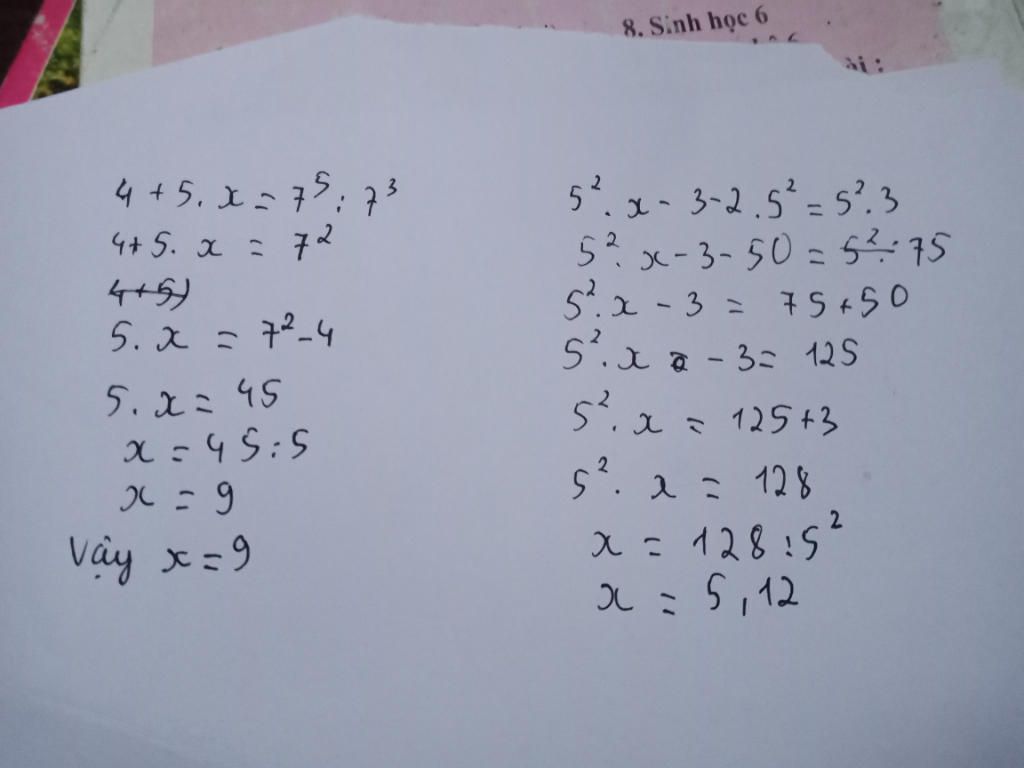 8. Sinh học 6
ài :
4 + 5. x = 7⁵ : 7³
4 + 5. x = 7²
4+5)
5. x = 7² - 4
5. x = 45
x = 45 : 5
x = 9
Vậy x = 9
5² . x - 3 - 2 . 5² = 5² . 3
5² . x - 3 - 50 = 5² : 75
5² . x - 3 = 75 + 50
5² . x - 3 = 125
5² . x = 125 + 3
5² . x = 128
x = 128 : 5²
x = 5,12